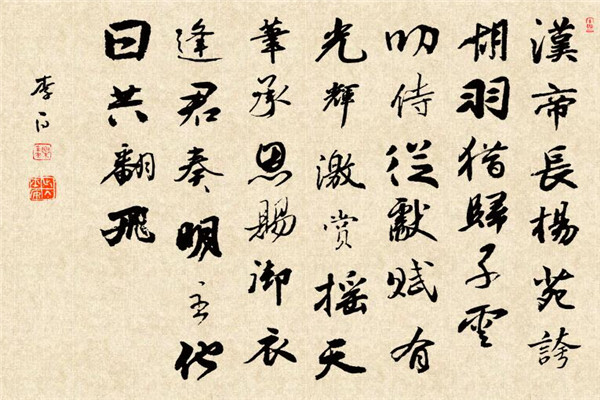 漢帝長楊苑誇
胡羽猎歸子雲
叨侍從獻賦有
光輝激賞摇天
筆承恩賜御衣
逢君奏明主他
日共翻飛
李白